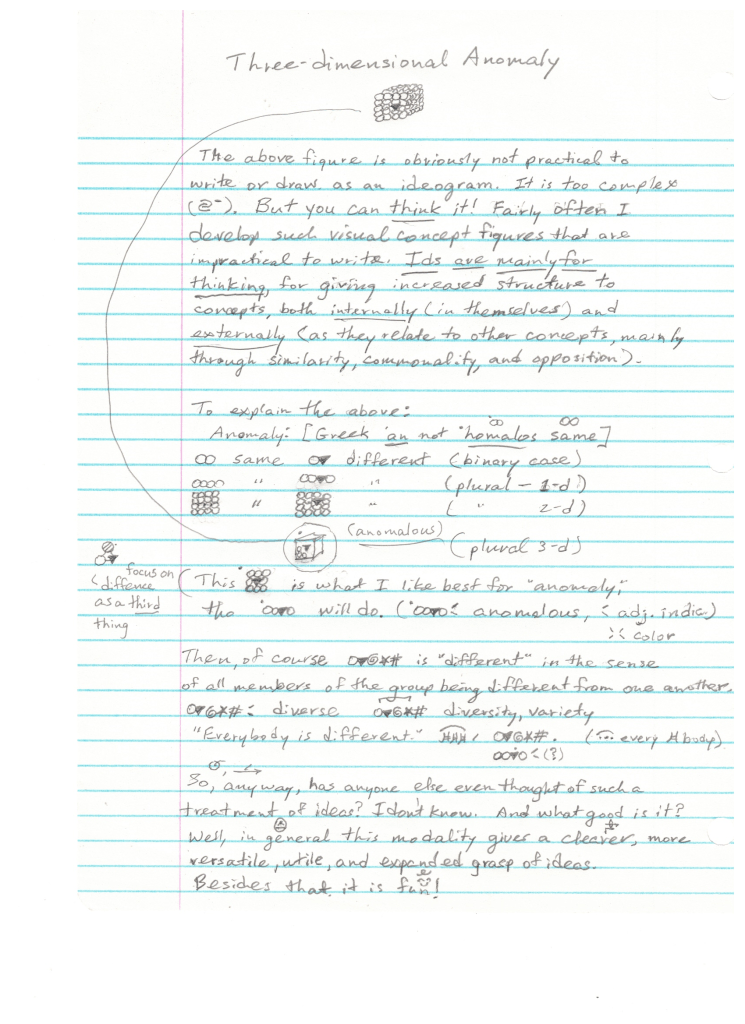 Three-dimensional Anomaly
The above figure is obviously not practical to
write or draw as an ideogram. It is too complex
(@⁻). But you can think it! Fairly often I
develop such visual concept figures that are
impractical to write. Ids are mainly for
thinking, for giving increased structure to
concepts, both internally (in themselves) and
externally (as they relate to other concepts, mainly
through similarity, commonality, and opposition).
To explain the above:
Anomaly: [Greek 'an not 'homalos same]
OO same O▼ different (binary case)
OOOO " OO▼O " (plural - 1-d)
" " ( " 2-d)
(anomalous) (plural 3-d)
focus on
diffence
as a third
thing
(This is what I like best for "anomaly,"
tho 'OO▼O will do. ('OO▼O: anomalous, : adj. indic.)
color
Then, of course O▼6*# is "different" in the sense
of all members of the group being different from one another.
O▼6*#: diverse O▼6*# diversity, variety
"Everybody is different." O▼6*#. ( every body)
So, anyway, has anyone else even thought of such a
treatment of ideas? I dont know. And what good is it?
Well, in general this modality gives a clearer, more
versatile, utile, and expanded grasp of ideas.
Besides that it is fun!